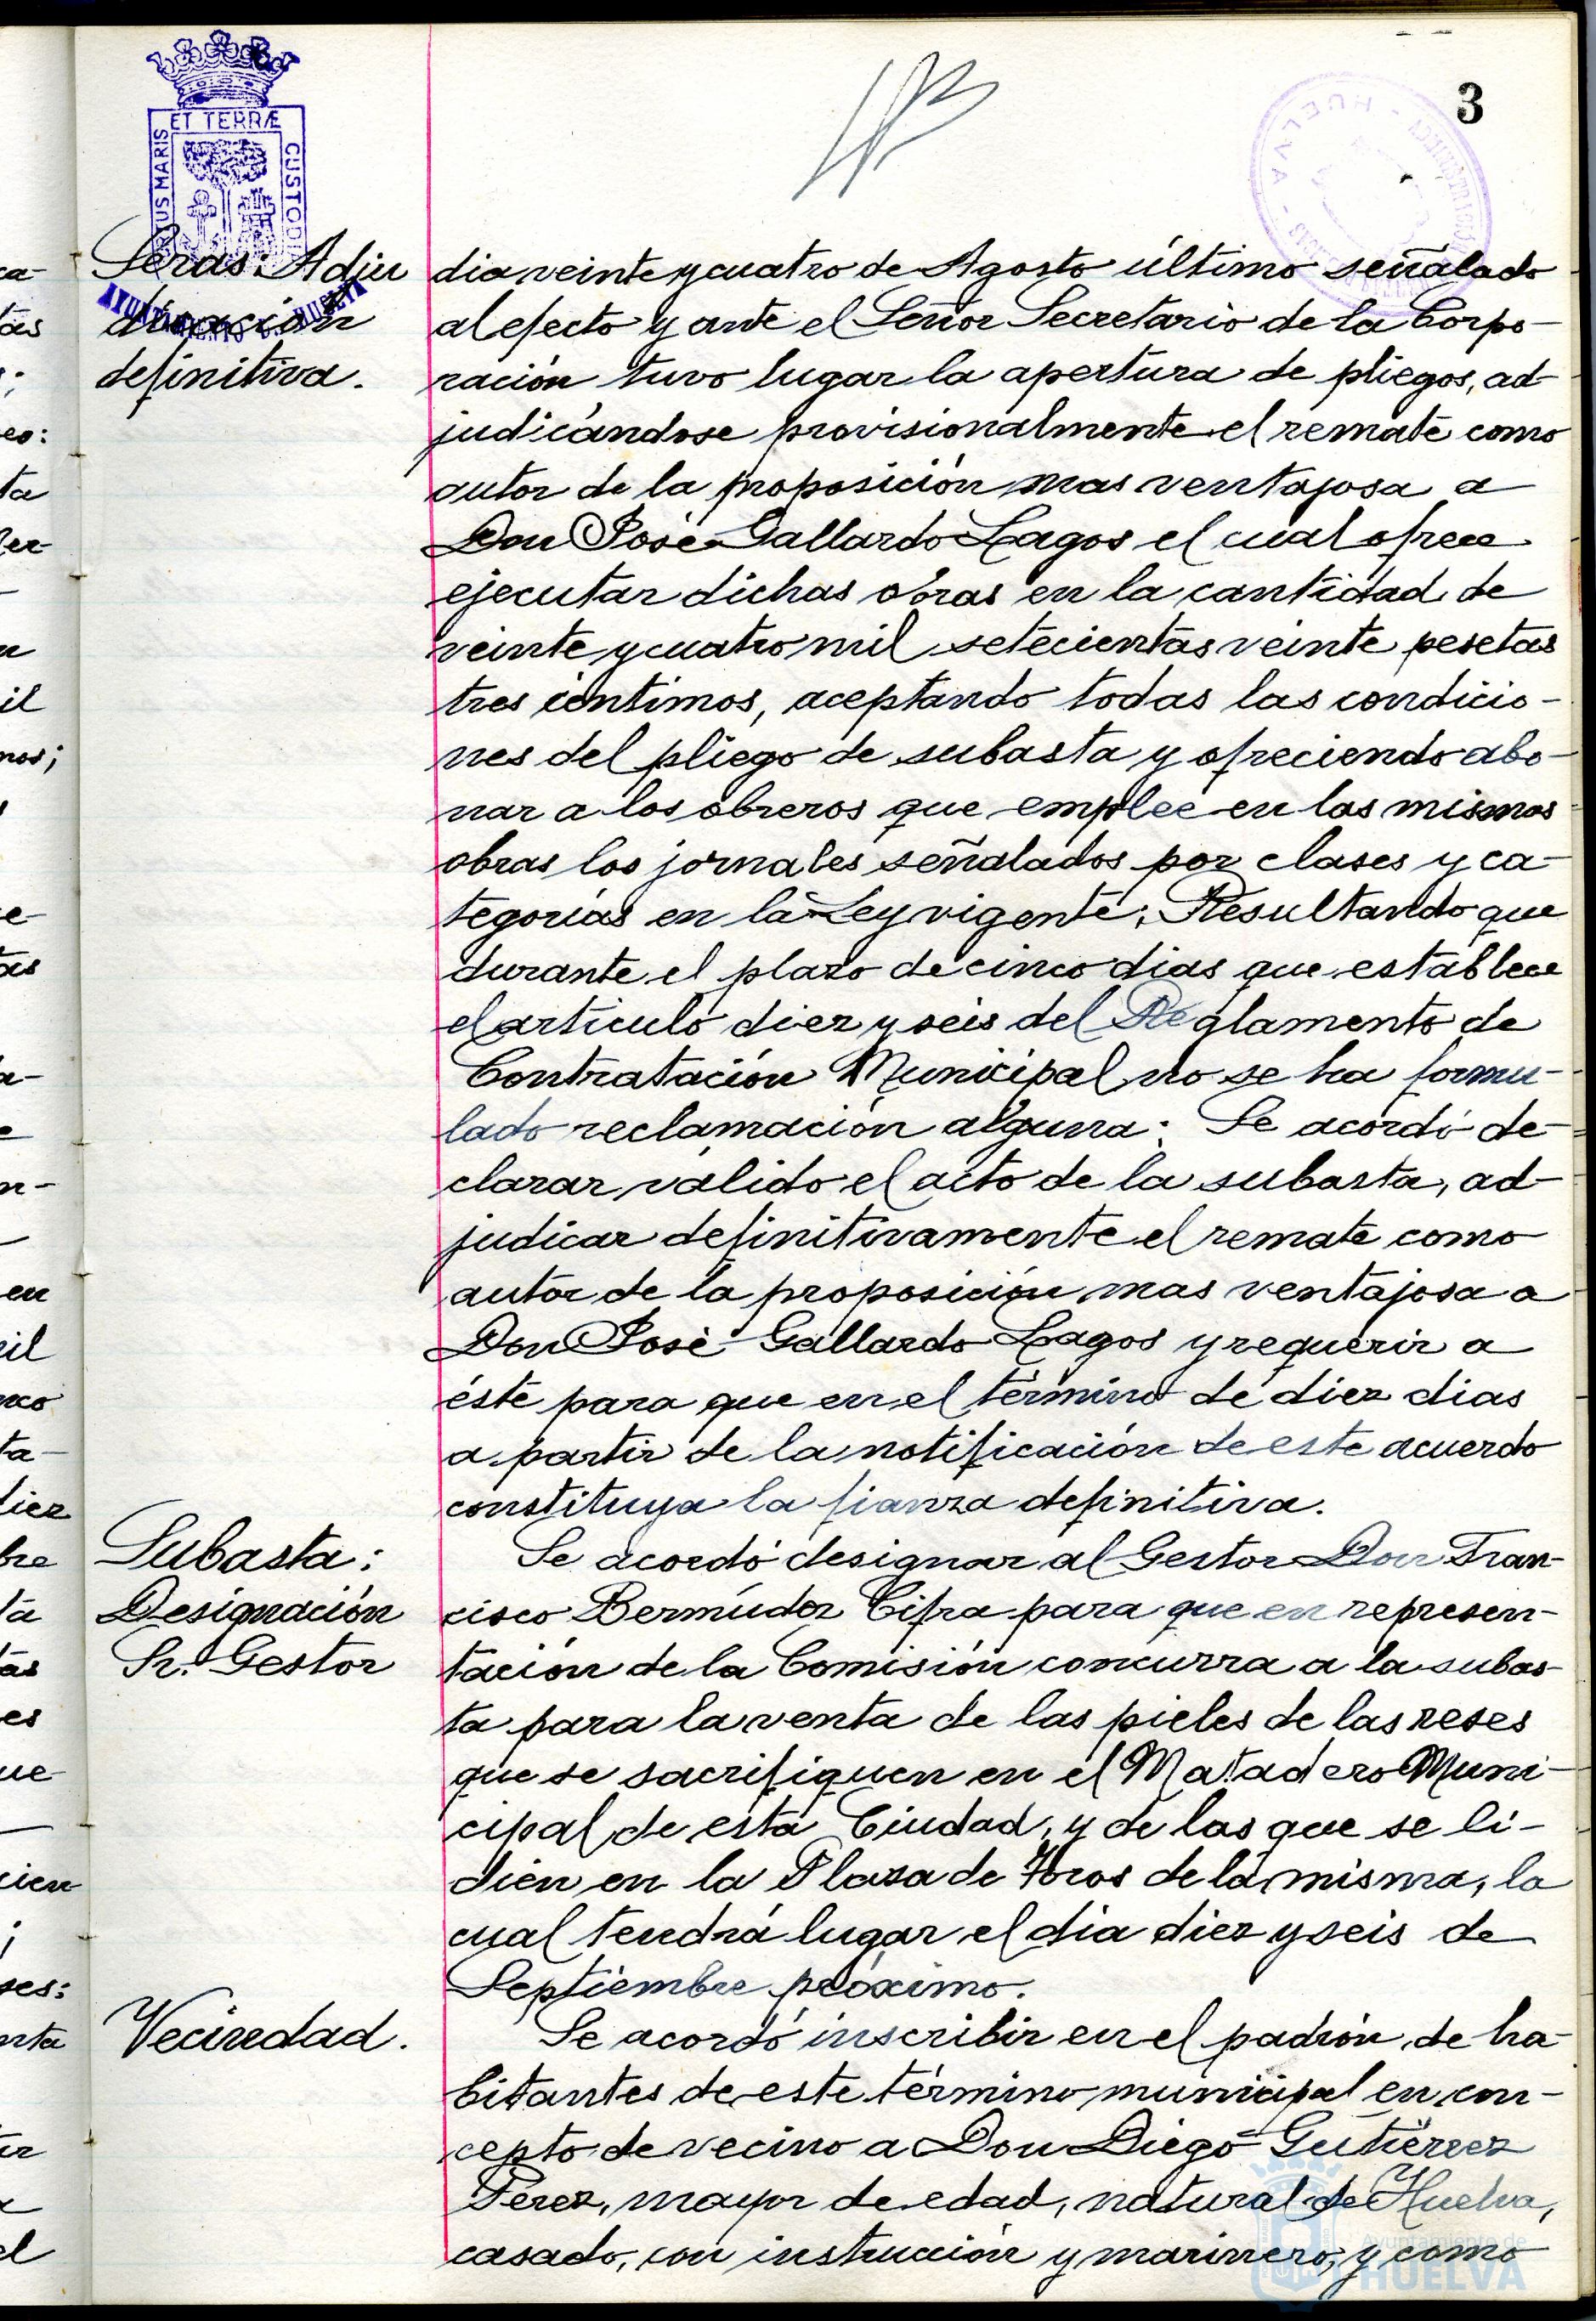 3
ET TERRÆ
CUSTODI
US MARIS
AYUNTAMIENTO DE HUELVA
HUELVA
Seras: Adju
dicación
definitiva.
dia veinte y cuatro de Agosto último señalado
al efecto y ante el Señor Secretario de la Corpo-
ración tuvo lugar la apertura de pliegos, ad-
judicándose provisionalmente el remate como
autor de la proposición mas ventajosa a
Don José Gallardo Lagos el cual ofrece
ejecutar dichas obras en la cantidad de
veinte y cuatro mil setecientas veinte pesetas
tres céntimos, aceptando todas las condicio-
nes del pliego de subasta y ofreciendo abo-
nar a los obreros que emplee en las mismas
obras los jornales señalados por clases y ca-
tegorías en la Ley vigente; Resultando que
durante el plazo de cinco dias que establece
el artículo diez y seis del Reglamento de
Contratación Municipal no se ha formu-
lado reclamación alguna: Se acordó de-
clarar válido el acto de la subasta, ad-
judicar definitivamente el remate como
autor de la proposición mas ventajosa a
Don José Gallardo Lagos y requerir a
éste para que en el término de diez dias
a partir de la notificación de este acuerdo
constituya la fianza definitiva.
Subasta:
Designación
Sr. Gestor
Se acordó designar al Gestor Don Fran-
cisco Bermúdez Cifra para que en represen-
tación de la Comisión concurra a la subas-
ta para la venta de las pieles de las reses
que se sacrifiquen en el Matadero Muni-
cipal de esta Ciudad, y de las que se li-
dien en la Plaza de Toros de la misma, la
cual tendrá lugar el dia diez y seis de
Septiembre próximo.
Vecindad.
Se acordó inscribir en el padrón de ha-
bitantes de este término municipal en con-
cepto de vecino a Don Diego Gutiérrez
Pérez, mayor de edad, natural de Huelva,
casado, con instrucción y marinero, y como
Ayuntamiento de
HUELVA